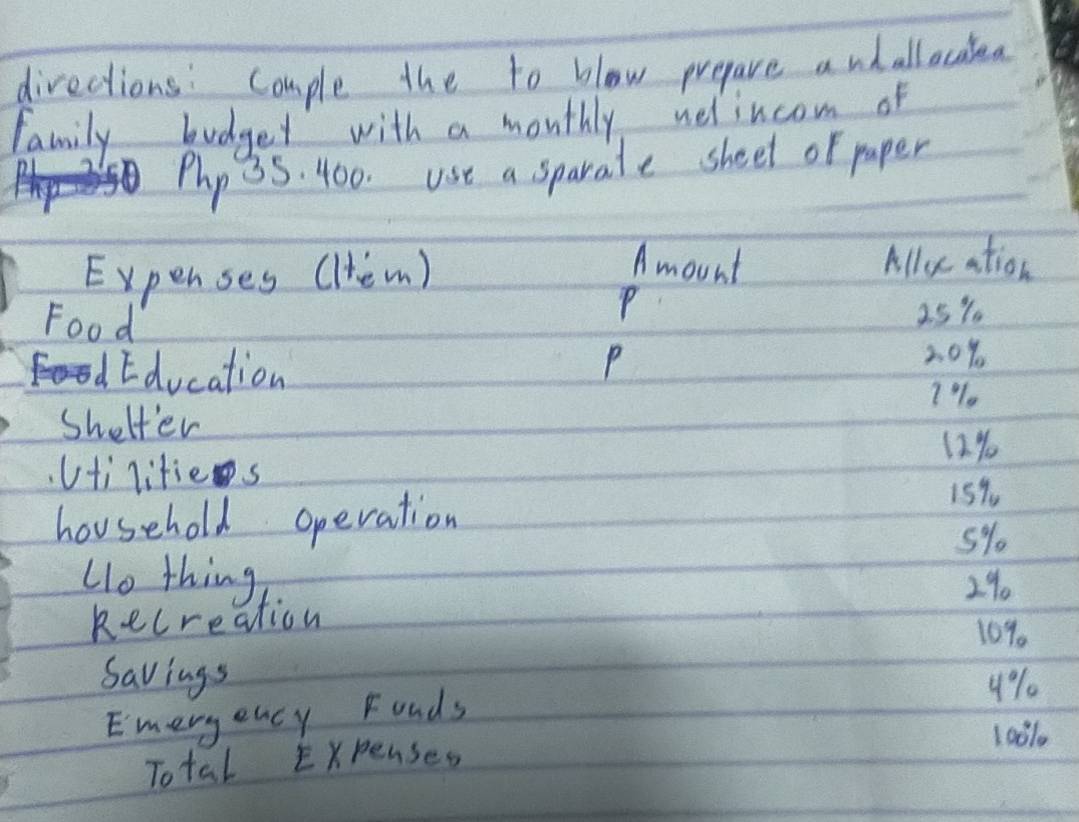 directions: Comple the to blow prepare and allocatea
family budget with a monthly net incom of
Php 350 Php 35.400. use a sparate sheet of paper
Expenses (Item) Amount Allocation
Food P 25%
Food Education P 20%
Shelter 7%
Utilities 12%
household operation 15%
Clothing 5%
Recreation 2%
Savings 10%
Emergency Funds 4%
Total Expenses 100%